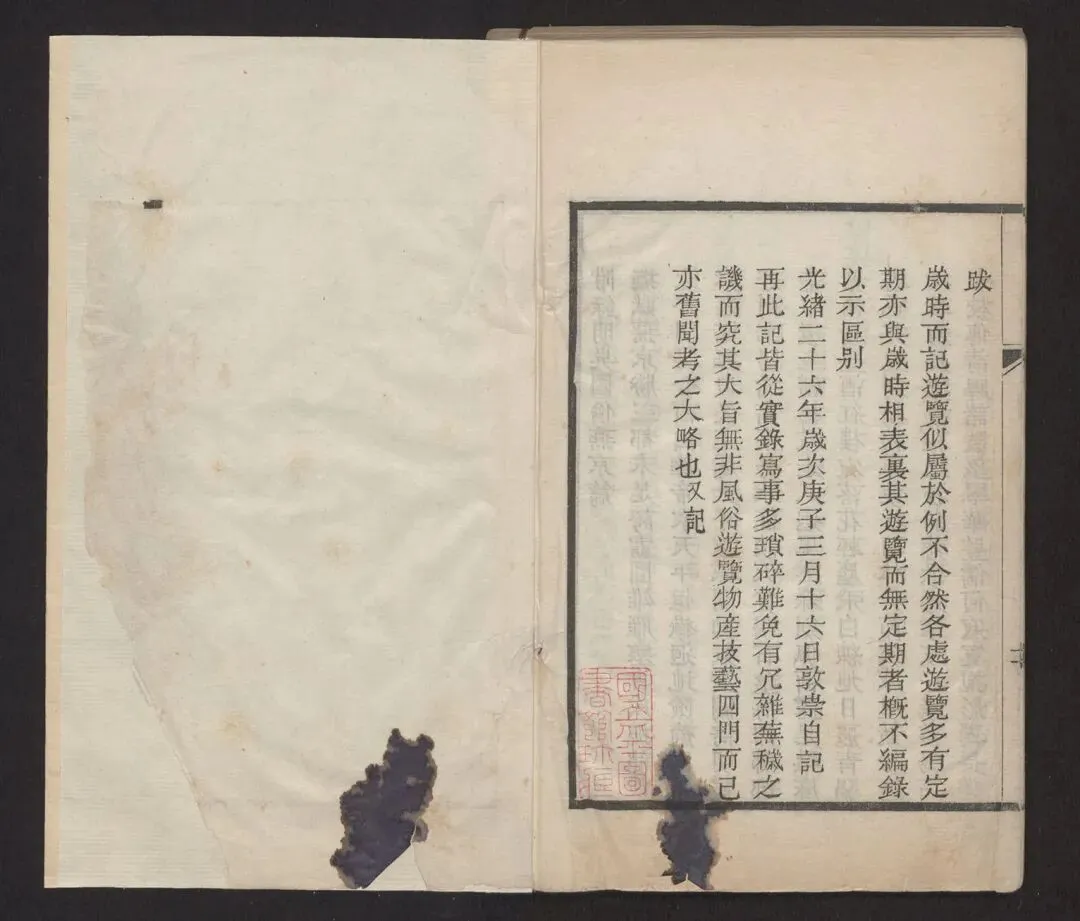 跋
歲時而記遊覽似屬於例不合然各處遊覽多有定
期亦與歲時相表裏其遊覽而無定期者槪不編錄
以示區別
光緒二十六年歲次庚子三月十六日敦崇自記
再此記皆從實錄寫事多瑣碎難免有冗雜蕪穢之
譏而究其大旨無非風俗遊覽物產技藝四門而已
亦舊聞考之大略也又記
國立北平圖
書館珍藏